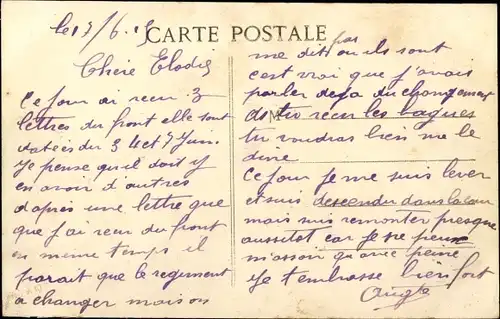 le 13/6.15
CARTE POSTALE
Chère Elodie
Ce jour ai recu 3
lettres du front elle sont
datées du 3 4 et 7 Juin.
Je pense quil doit y
en avoir d'autres
d'après une lettre que
que j'ai recu du front
en meme temps il
parait que le regiment
a changer mais on
me dit pas ou ils sont
c'est vrai que j'avais
parler deja du changement
as tu recu les bagues
tu voudras bien me le
dire
Ce jour je me suis lever
et suis descendu dans la cour
mais suis remonter presque
aussitot car je ne peu
m'assoir qu'avec peine
Je t'embrasse bien fort